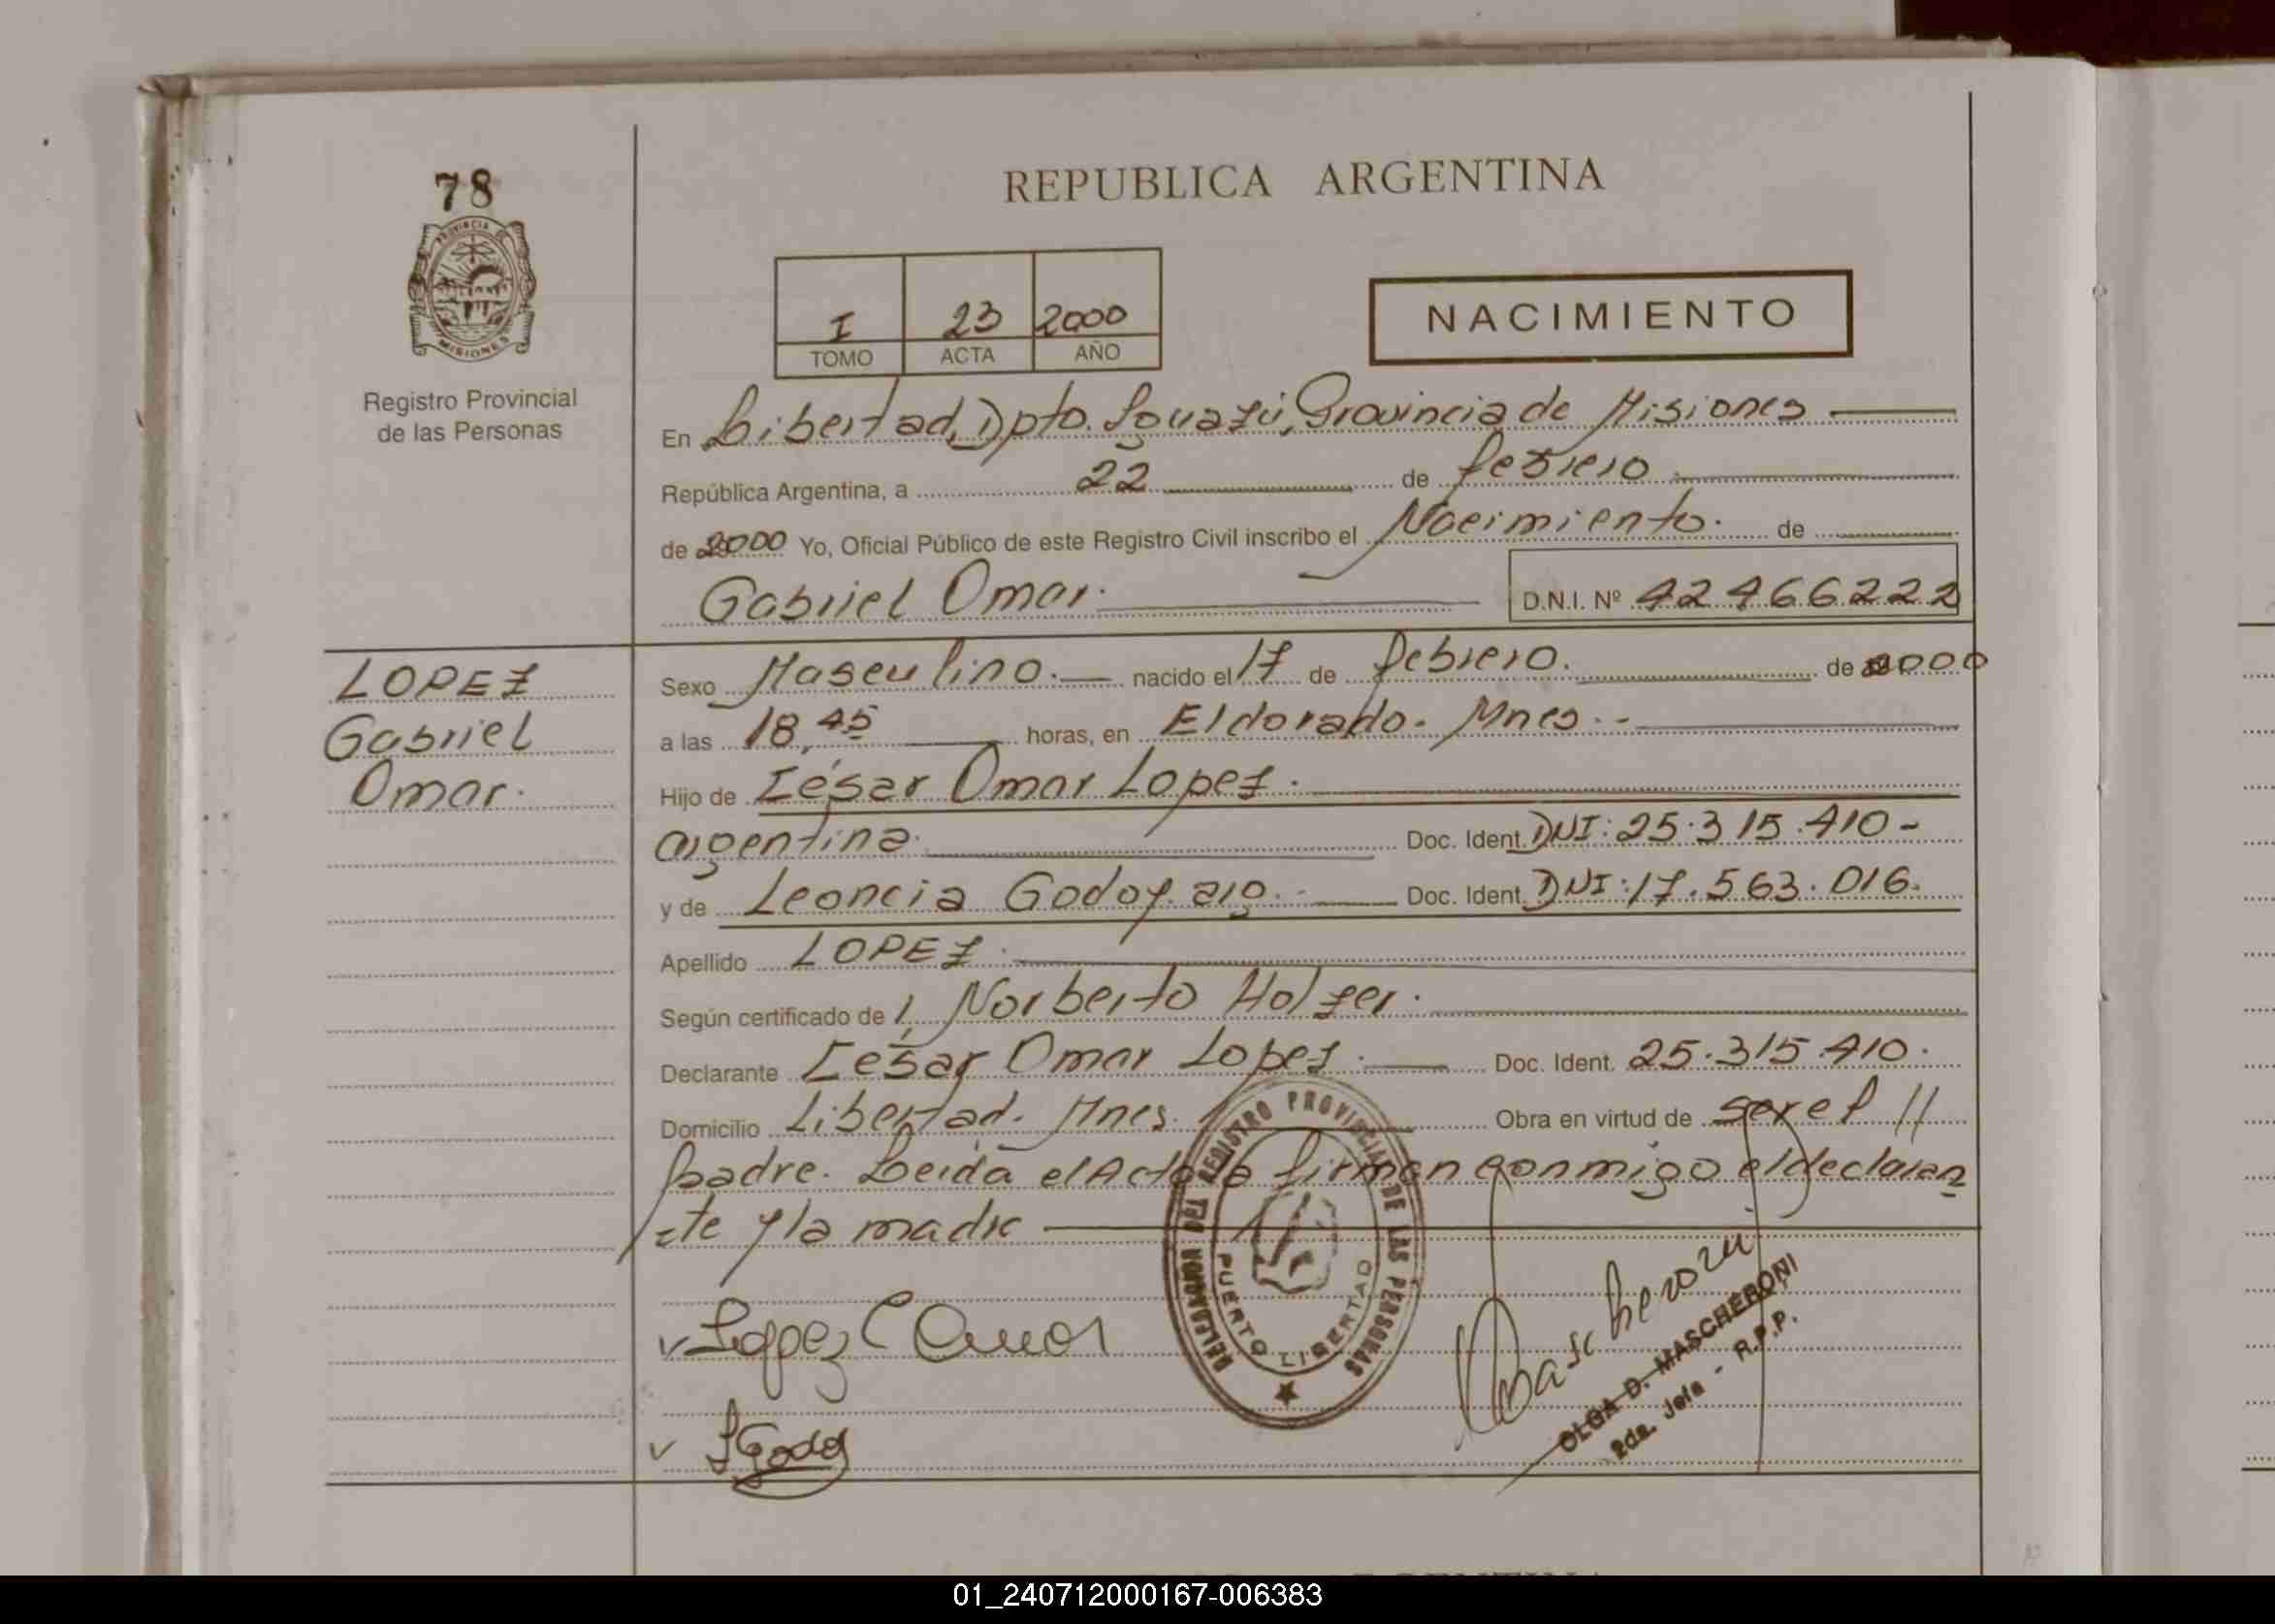 78
REPUBLICA ARGENTINA
PROVINCIA DE
MISIONES
Registro Provincial
de las Personas
I 23 2000
TOMO ACTA AÑO
NACIMIENTO
En Libertad, Dpto. Iguazú, Provincia de Misiones
República Argentina, a 22 de febrero
de 2000 Yo, Oficial Público de este Registro Civil inscribo el Nacimiento. de
Gabriel Omar. D.N.I. Nº 42466222
LOPEZ
Gabriel
Omar.
Sexo Masculino. nacido el 17 de febrero. de 2000
a las 18,45 horas, en Eldorado. Mnes.-
Hijo de César Omar Lopez.
argentina. Doc. Ident. DNI: 25.315.410-
y de Leoncia Godoy. arg. Doc. Ident. DNI: 17.563.016.
Apellido LOPEZ.
Según certificado de 1, Norberto Holzer.
Declarante César Omar Lopez. Doc. Ident. 25.315.410.
Domicilio Libertad. Mnes. Obra en virtud de ser el //
padre. Leida el Acta la firman conmigo el declaran
te y la madre
DELEGACION DEL REGISTRO PROVINCIAL DE LAS PERSONAS
PUERTO LIBERTAD
Lopez C Omar
Mascheroni
OLGA D. MASCHERONI
2da. Jefa - R.P.P.
L Godoy
01_240712000167-006383